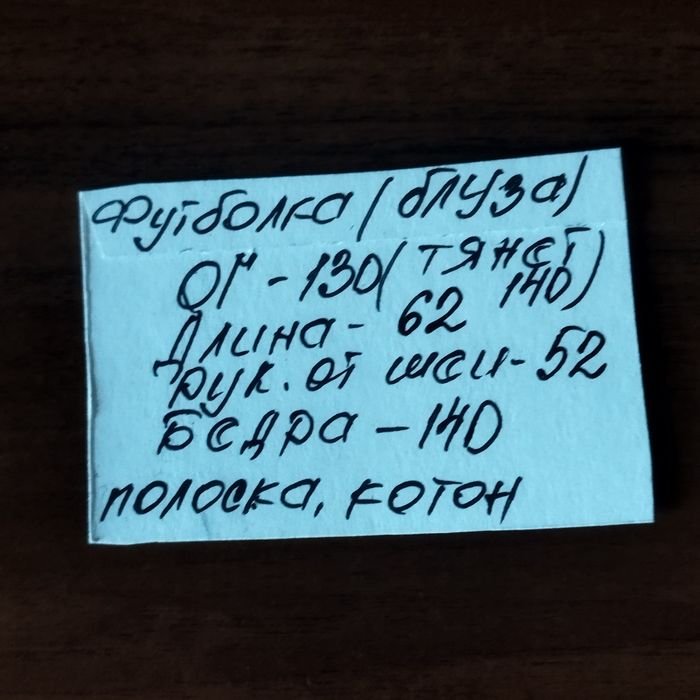 Футболка (блуза)
ОГ - 130 (тянет 140)
Длина - 62
рук. от шеи - 52
Бедра - 140
полоска, котон